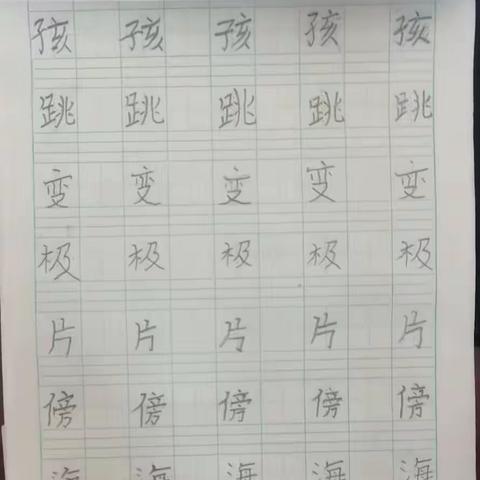 孩 孩 孩 孩 孩
跳 跳 跳 跳 跳
变 变 变 变 变
极 极 极 极 极
片 片 片 片 片
傍 傍 傍 傍 傍
海 海 海 海 海